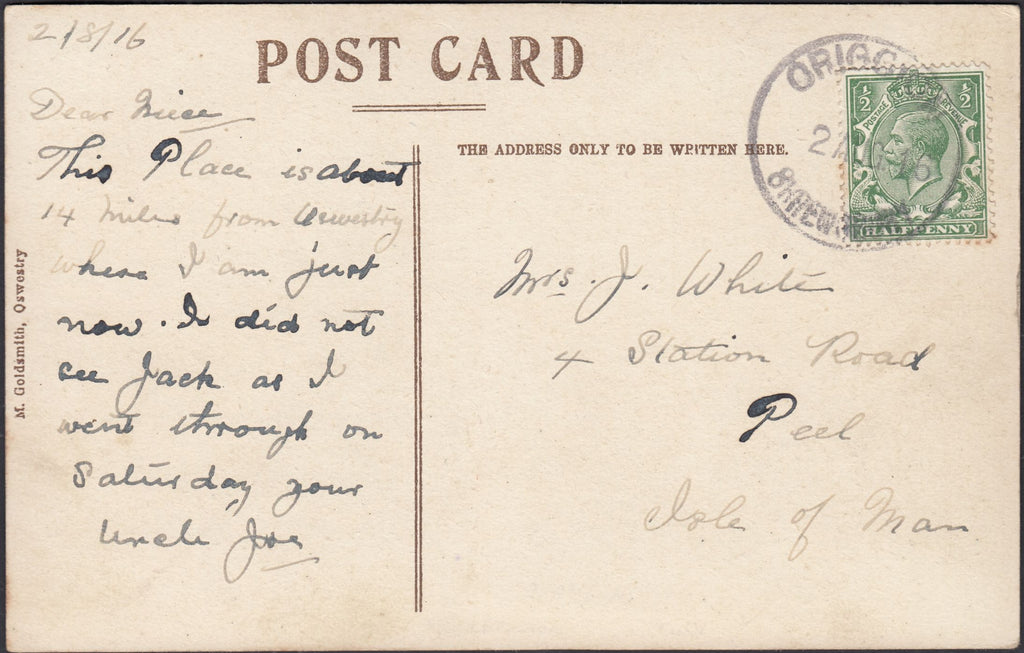 2/8/16
POST CARD
Dear Niece
This Place is about
14 miles from Oswestry
where I am just
now. I did not
see Jack as I
went through on
Saturday your
Uncle Joe
M. Goldsmith, Oswestry
THE ADDRESS ONLY TO BE WRITTEN HERE.
Mrs. J. White
4 Station Road
Peel
Isle of Man
2
16
SHREWSBURY
½ ½
POSTAGE REVENUE
HALFPENNY